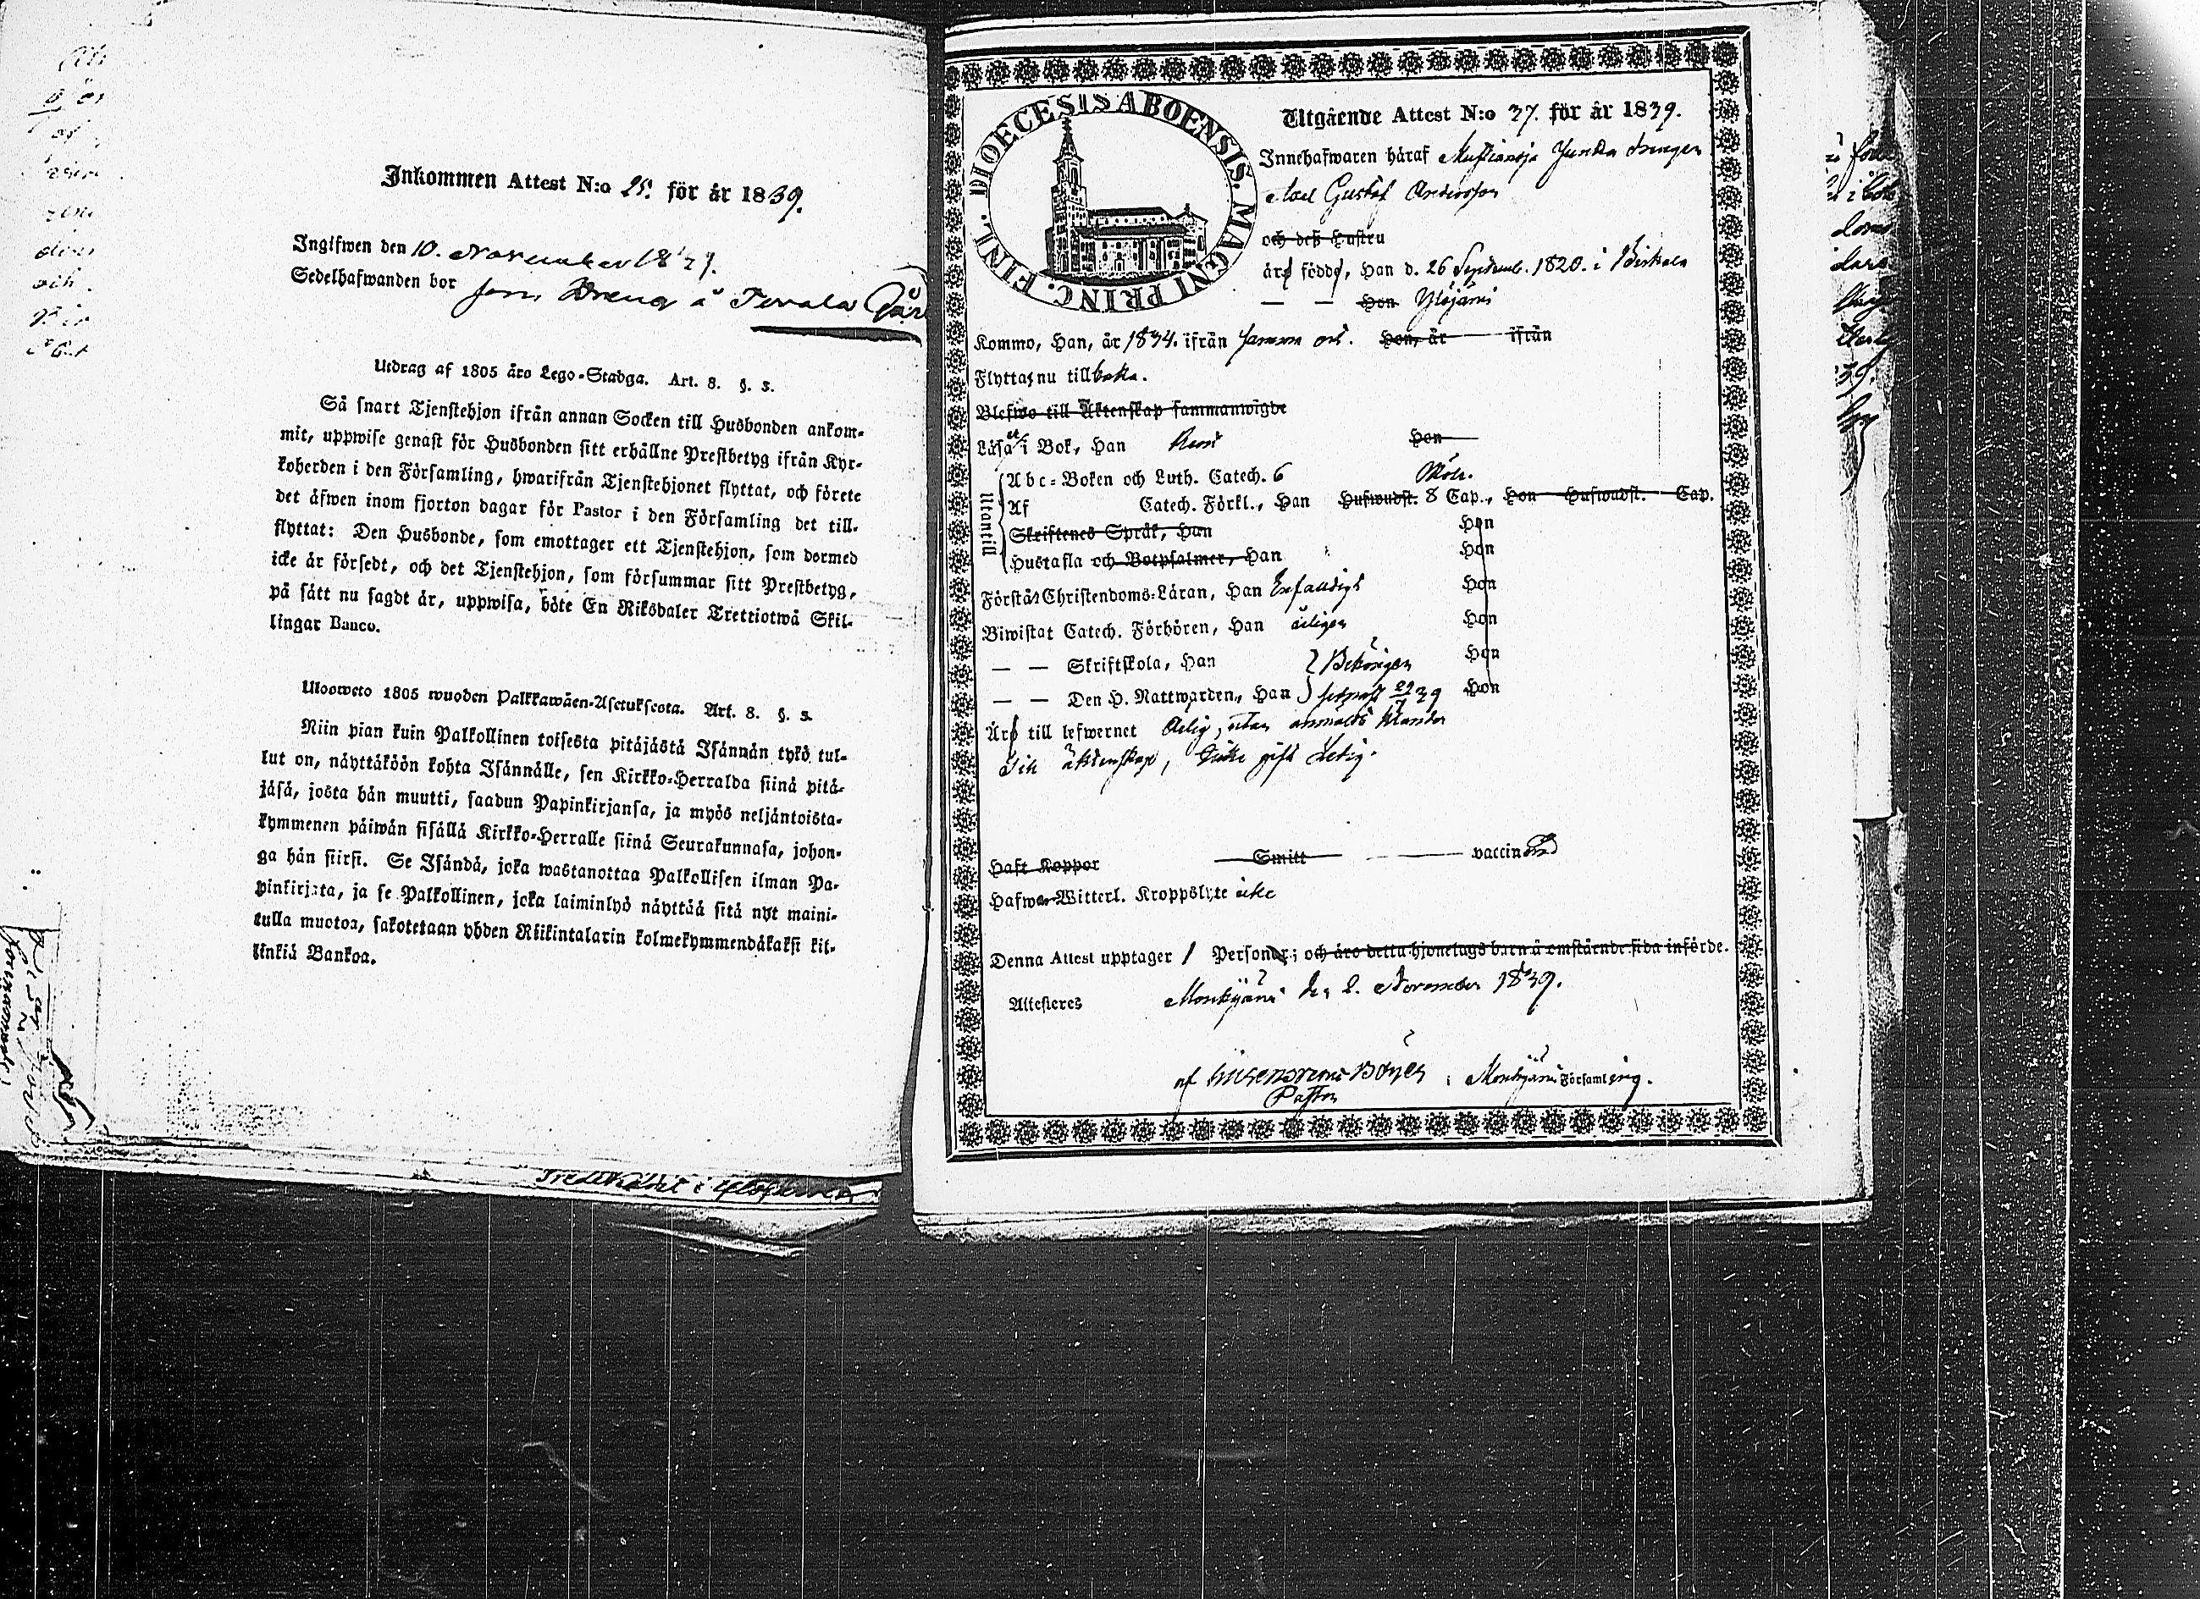 Inkommen Attest N:o 25. för år 1839.
Ingifwen den 10. November 1839.
Sedelhafwanden bor som Dreng å
Utdrag af 1805 åro Lego-Stadga. Art. 8. §. 3.
Så snart Tjenstehjon ifrån annan Socken till Husbonden ankom-
mit, uppwise genast för Husbonden sitt erhållne Prestbetyg ifrån Kyr-
koherden i den Församling, hwarifrån Tjenstehjonet flyttat, och förete
det äfwen inom fjorton dagar för Pastor i den Församling det till-
flyttat: Den Husbonde, som emottager ett Tjenstehjon, som dermed
icke är försedt, och det Tjenstehjon, som försummar sitt Prestbetyg,
på sätt nu sagdt är, uppwisa, böte En Riksdaler Trettiotwå Skil-
lingar Banco.
Ulosweto 1805 wuoden Palkkawäen-Asetuksesta. Art. 8. §. 3.
Niin pian kuin Palkollinen toisesta pitäjästä Isännän tykö tul-
lut on, näyttäköön kohta Isännälle, sen Kirkko-Herralda siinä pitä-
jäsä, josta hän muutti, saadun Papinkirjansa, ja myös neljäntoista-
kymmenen päiwän sisällä Kirkko-Herralle siinä Seurakunnasa, johon-
ga hän siirsi. Se Isändä, joka wastanottaa Palkollisen ilman Pa-
pinkirjata, ja se Palkollinen, joka laiminlyö näyttää sitä nyt maini-
tulla muotoa, sakotetaan yhden Riikintalarin kolmekymmendäkaksi kil-
linkiä Bankoa.
DIOECESIS ABOENSIS. MAGNI PRINC. FINL.
Utgående Attest N:o 37. för år 1839.
Innehafwaren häraf drengen
Gustaf Andersson
och deß hustru
äro födde, Han d. 26 Septemb. 1820. i Birkala
— — Hon Ylöjärvi
Kommo, Han, år 1834. ifrån samma ort. Hon, år ifrån
Flyttar nu tillbaka.
Blefwo till Äktenskap sammanwigde
Läsa i Bok, Han Rent Hon
Utantill
Abc-Boken och Luth. Catech. 6
Af Catech. Förkl., Han Hufwudst. 8 Cap., Hon Hufwudst. Cap.
Skriftenes Språk, Han Hon
Hustafla och Botpsalmer, Han Hon
Förstår Christendoms-Läran, Han Enfaldigt Hon
Biwistat Catech. Förhören, Han årligen Hon
— — Skriftskola, Han Behörigen Hon
— — Den H. Nattwarden, Han Hon
Äro till lefwernet ärlig, utan anmäldt hinder
till äktenskap, icke gift Ledig.
Haft Koppor Smitt vaccinerad
Hafwa Witterl. Kroppslyte icke
Denna Attest upptager 1 Personer; och äro detta hjonelags barn å omstående sida införde.
Attesteres Mouhijärvi den 2. November 1839.
i Mouhijärvi Församling.
Pastor